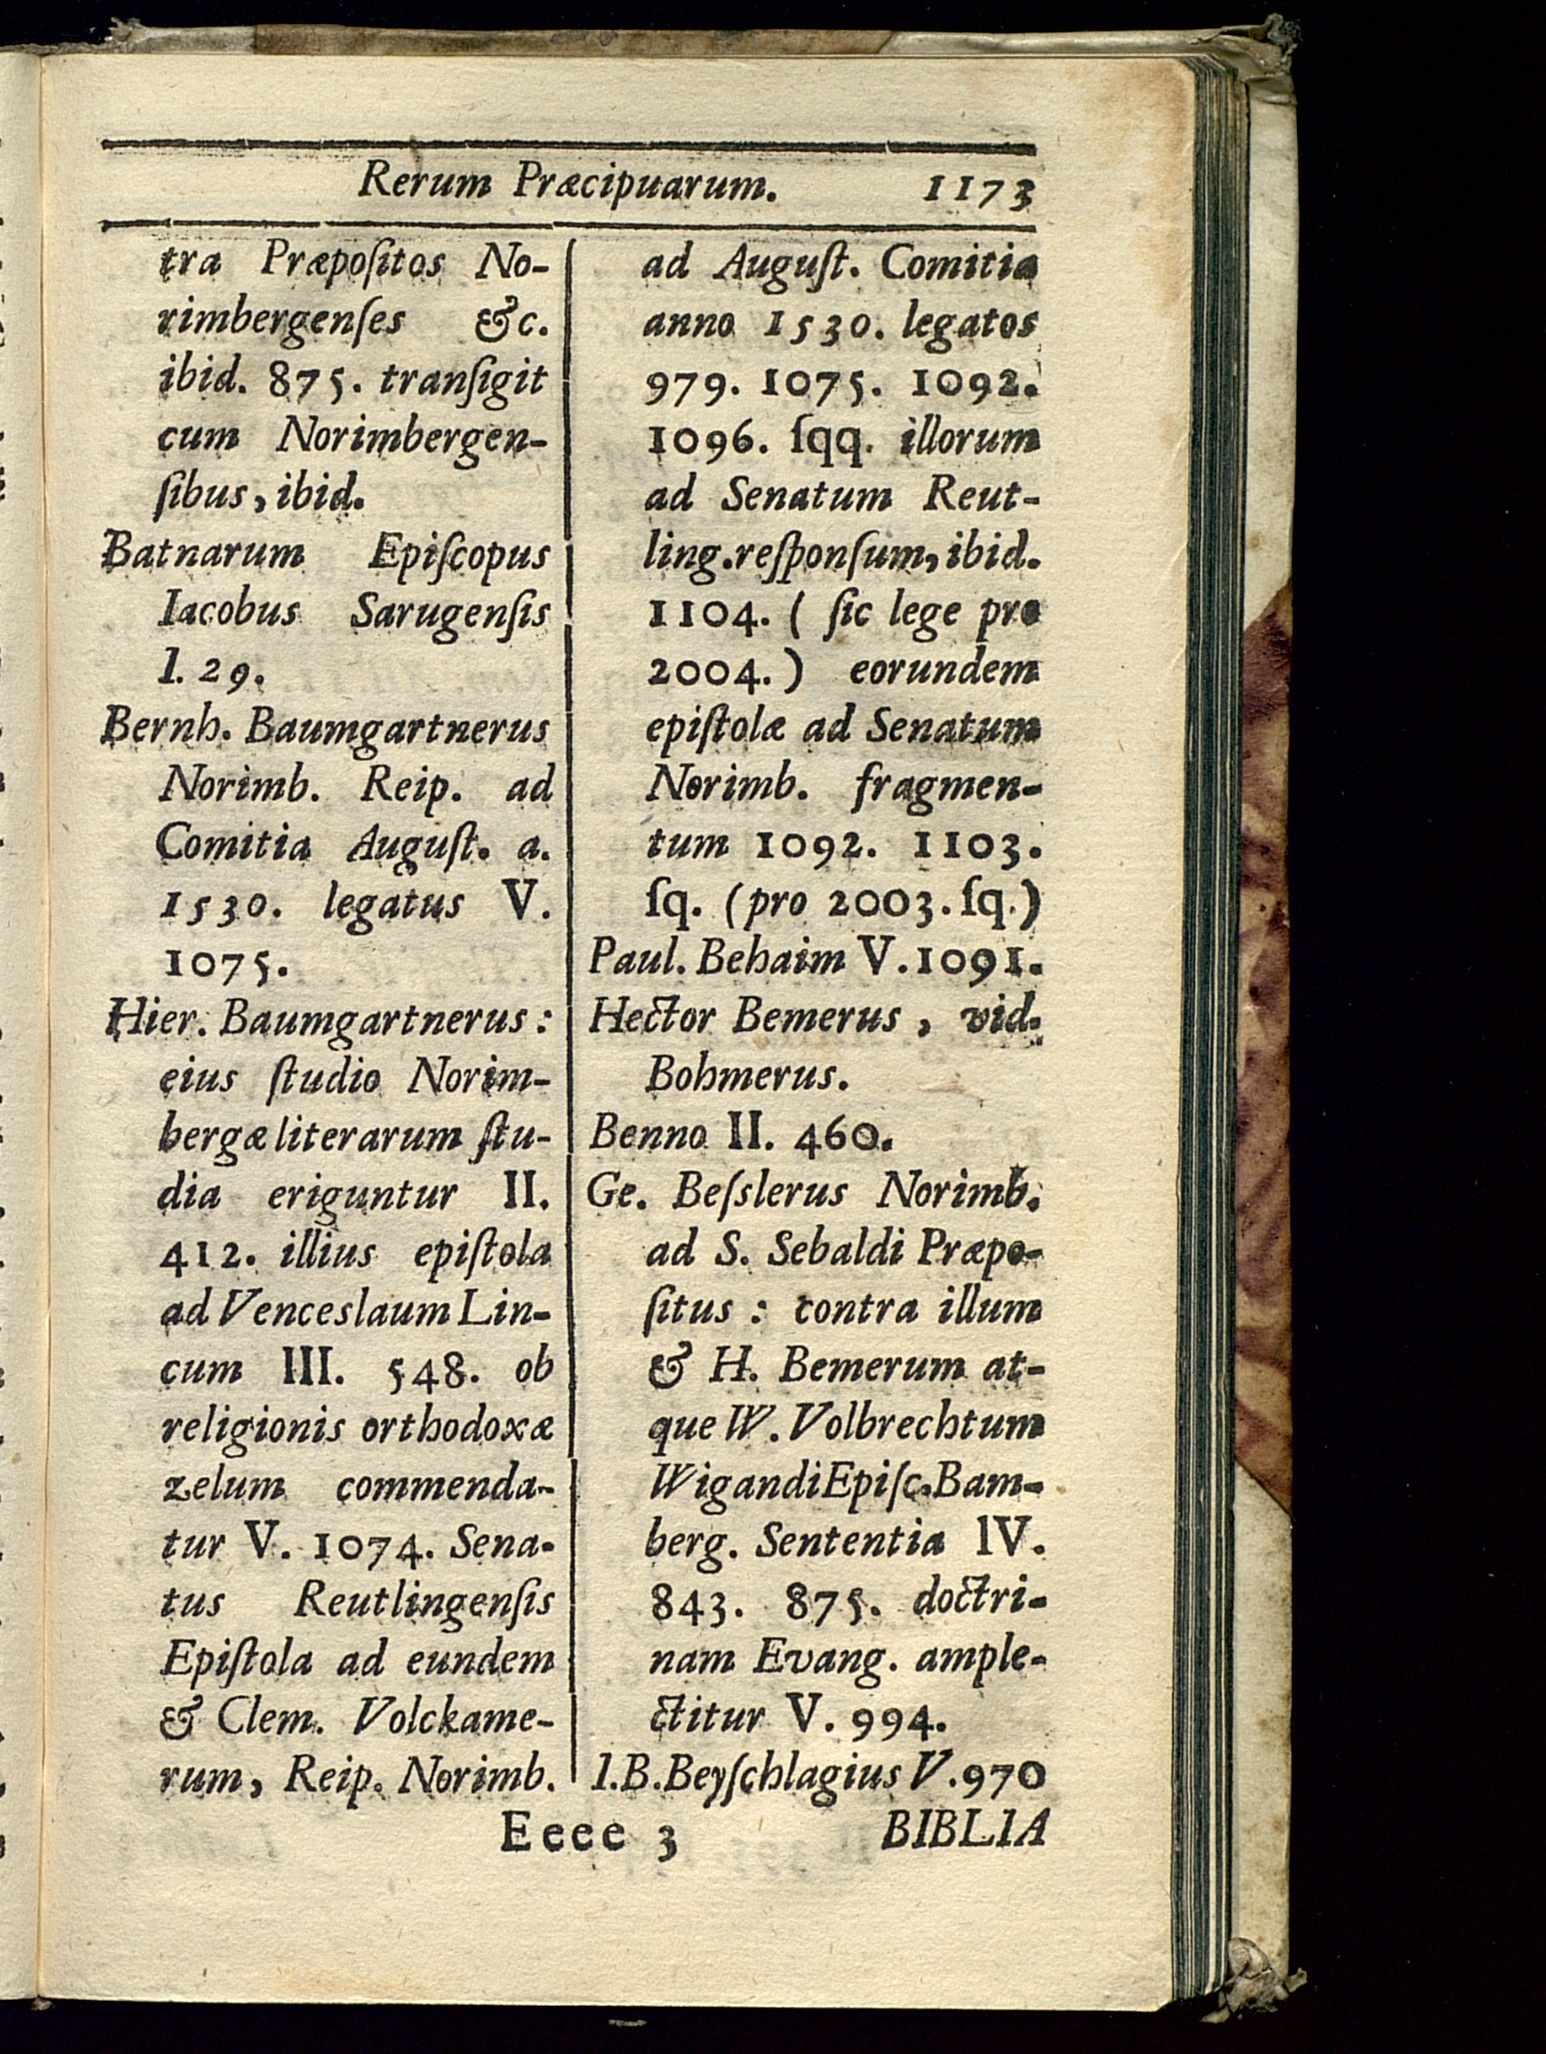 Rerum Præcipuarum. 1173
tra Præpoſitos No-
rimbergenſes &c.
ibid. 875. tranſigit
cum Norimbergen-
ſibus, ibid.
Batnarum Epiſcopus
Iacobus Sarugenſis
I. 29.
Bernh. Baumgartnerus
Norimb. Reip. ad
Comitia Auguſt. a.
1530. legatus V.
1075.
Hier. Baumgartnerus:
eius ſtudio Norim-
bergæ literarum ſtu-
dia eriguntur II.
412. illius epiſtola
ad Venceslaum Lin-
cum III. 548. ob
religionis orthodoxæ
zelum commenda-
tur V. 1074. Sena-
tus Reutlingenſis
Epiſtola ad eundem
& Clem. Volckame-
rum, Reip. Norimb.
ad Auguſt. Comitia
anno 1530. legatos
979. 1075. 1092.
1096. ſqq. illorum
ad Senatum Reut-
ling. reſponſum, ibid.
1104. ( ſic lege pro
2004. ) eorundem
epiſtolæ ad Senatum
Norimb. fragmen-
tum 1092. 1103.
ſq. (pro 2003. ſq.)
Paul. Behaim V. 1091.
Hector Bemerus, vid.
Bohmerus.
Benno II. 460.
Ge. Beſslerus Norimb.
ad S. Sebaldi Præpo-
ſitus: contra illum
& H. Bemerum at-
que W. Volbrechtum
Wigandi Epiſc. Bam-
berg. Sententia IV.
843. 875. doctri-
nam Evang. ample-
ctitur V. 994.
I. B. Beyſchlagius V. 970
Eeee 3 BIBLIA